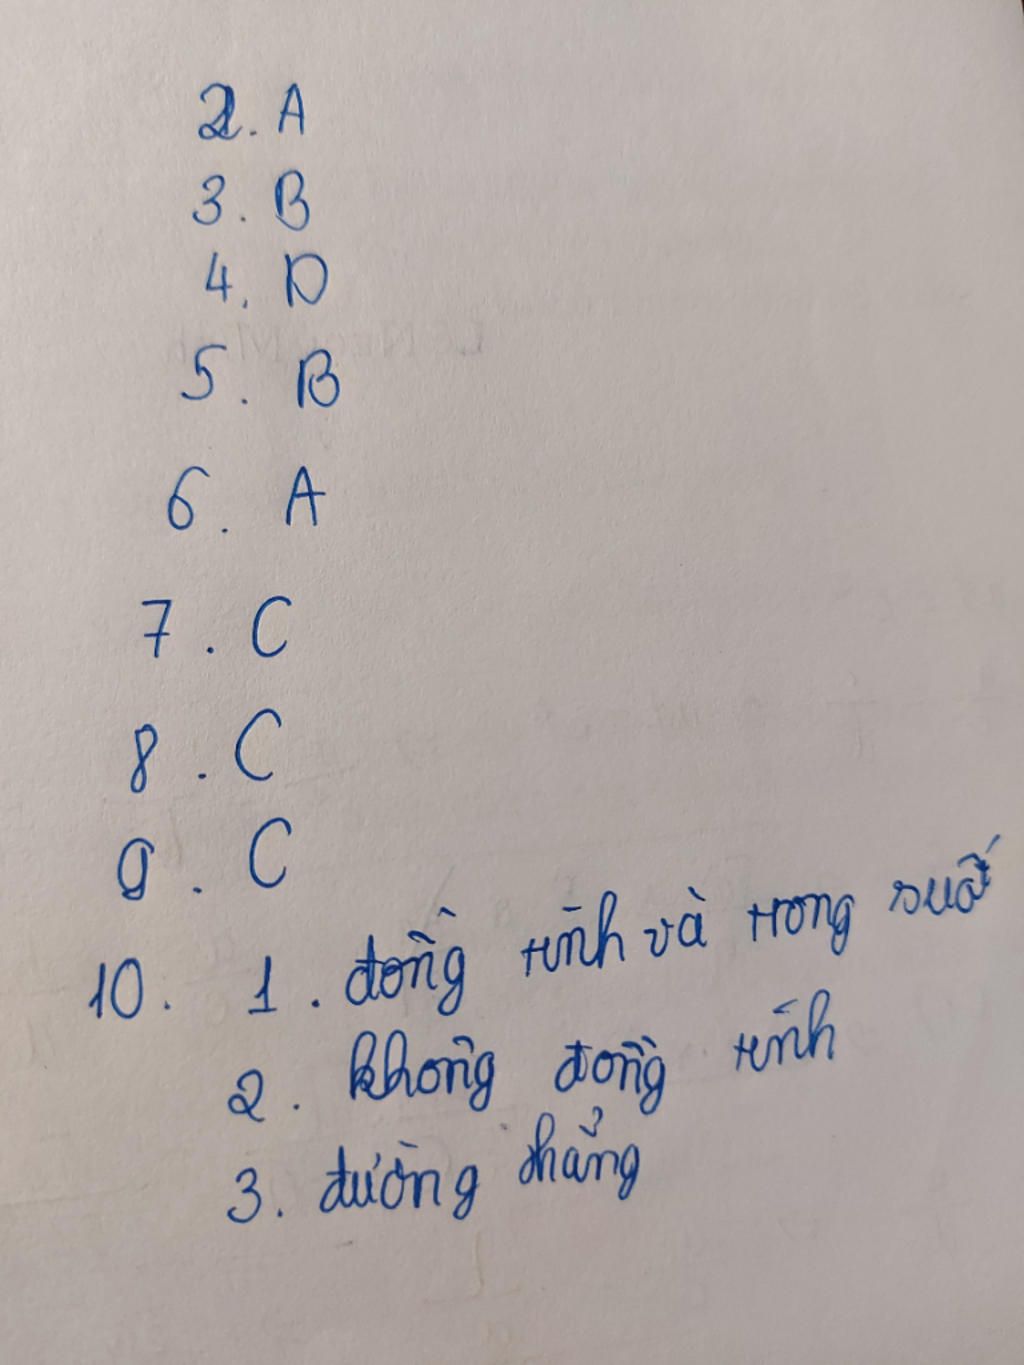 2. A
3. B
4. D
5. B
6. A
7. C
8. C
9. C
10. 1. đồng tính và trong suố
2. không đồng tính
3. đường thẳng